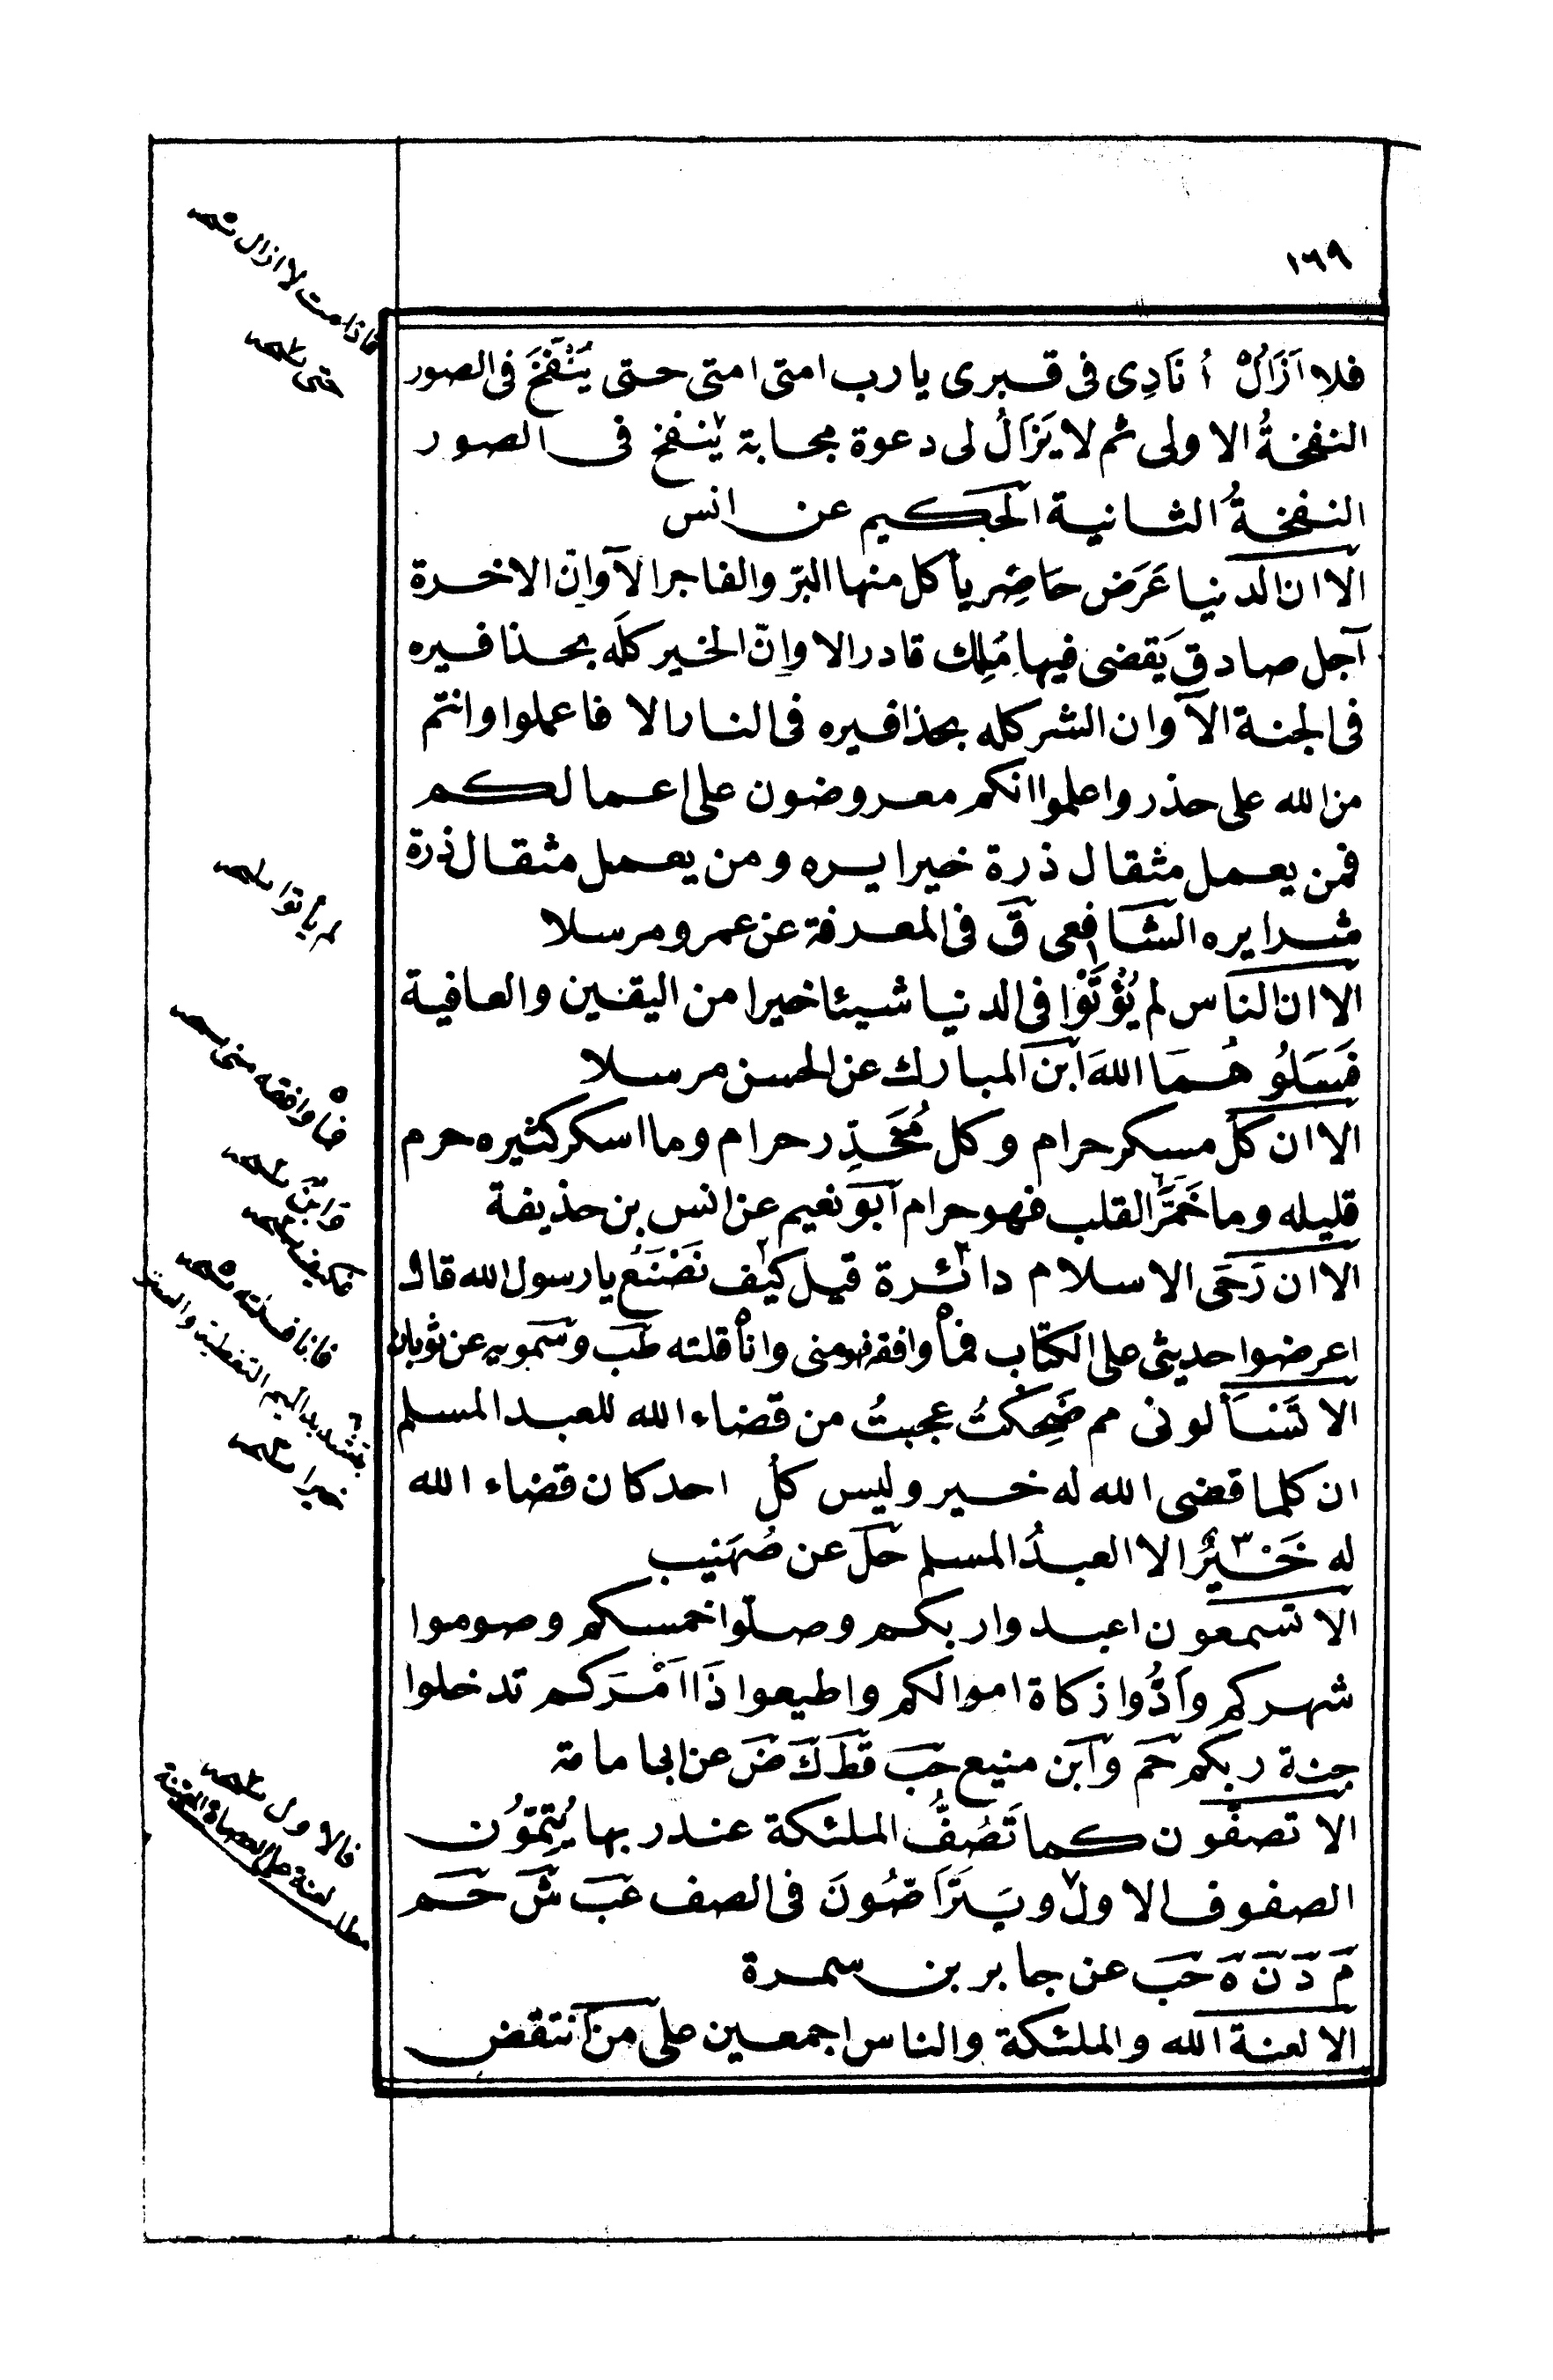 ١٦٩
فلا اَزَالُ اُنَادِى فى قبرى يا رب امتى امتى حتى يُنْفَخَ فى الصور
النفخةُ الاولى ثم لا يَزَالُ لى دعوة مجابة ينفخ فى الصور
النفخةُ الثانية الحكيم عن انس
الا ان الدنيا عَرَض حَاضِر يأكل منها البرّ والفاجر الآ وانّ الاخرة
آجل صادق يَقضى فيها مَلِك قادر الا وانّ الخير كلَه بحذافيره
فى الجنة الآ وان الشر كله بحذافيره فى النار الا فاعملوا وانتم
من الله على حذر واعلموا انكم معروضون على اعمالكم
فمن يعمل مثقال ذرة خيرا يره ومن يعمل مثقال ذرة
شرا يره الشافعى ق فى المعرفة عن عمرو مرسلا
الا ان الناس لم يُؤْتَوْا فى الدنيا شيئا خيرا من اليقين والعافية
فَسَلُوهُمَا اللهَ ابن المبارك عن الحسن مرسلا
الا ان كل مسكر حرام وكل مُخَدِّر حرام وما اسكر كثيره حرم
قليله وما خَمَّرَ القلب فهو حرام ابو نعيم عن انس بن حذيفة
الا ان رَحَى الاسلام دائرة قيل كيف نَصْنَعُ يا رسول الله قال
اعرضوا حديثى على الكتاب فما وافقه فهو منى وانا قلته طب وسمويه عن ثوبان
الا تَسْأَلونى مم ضَحِكتُ عجبتُ من قضاء الله للعبد المسلم
ان كلما قضى الله له خير وليس كلُ احد كان قضاء الله
له خَيْرٌ الا العبدُ المسلم حل عن صُهَيب
الا تسمعون اعبدوا ربكم وصلّوا خمسكم وصوموا
شهركم وأدُّوا زكاة اموالكم واطيعوا ذَا اَمْرَكم تدخلوا
جنة ربكم حم وابن منيع حب قط ك ض عن ابى امامة
الا تصفّون كما تَصُفُّ الملئكة عند ربها يُتِمّوُن
الصفوف الاول ويَتَرَاصُّونَ فى الصف عب ش حم
م د ن ه حب عن جابر بن سمرة
الا لعنة الله والملئكة والناس اجمعين على من انتقض
فاذا مت لا ازال
حتى
لم يأتوا
فما وافقه منى
وابن
فكيف
فانا قلته
بتشديد الميم التغطية والستر
خيرا
فالاول
مطلب لعنة على